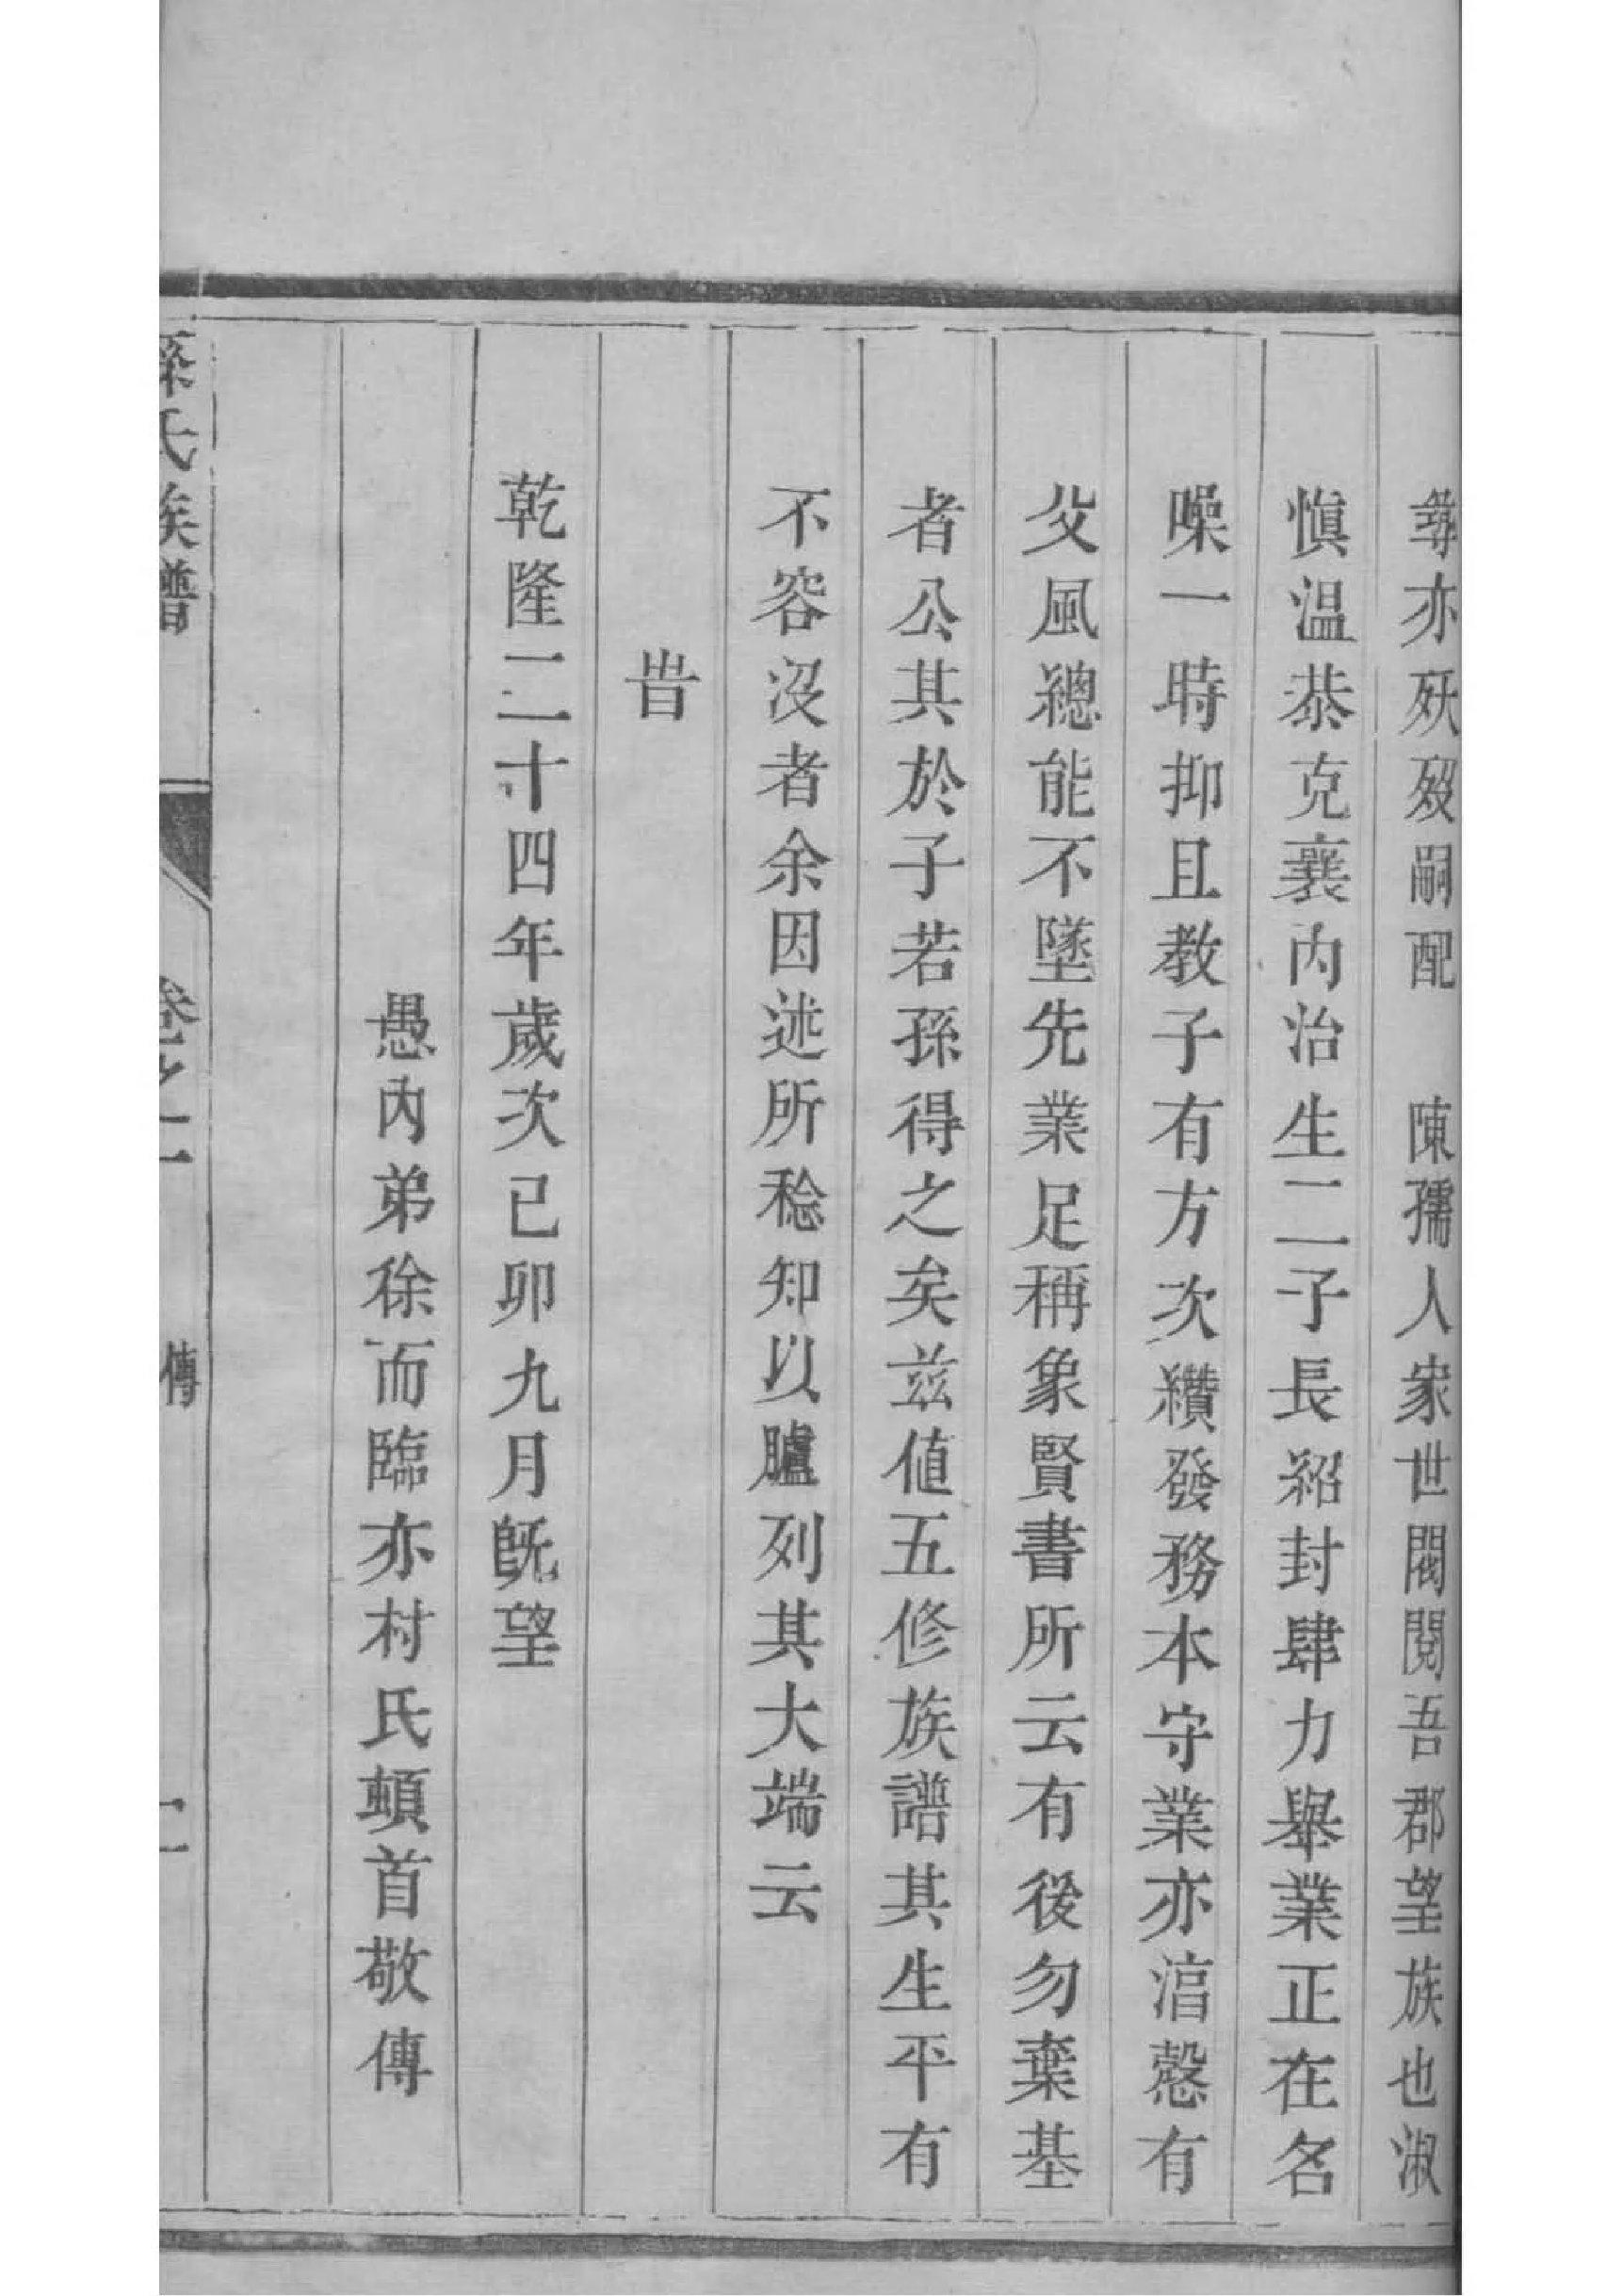 尋亦殀歿嗣配　陳孺人家世閥閱吾郡望族也淑
慎温恭克襄內治生二子長紹封肆力舉業正在名
噪一時抑且教子有方次纘發務本守業亦㴞慤有
父風總能不墜先業足稱象賢書所云有後勿棄基
者公其於子若孫得之矣兹值五修族譜其生平有
不容沒者余因述所稔知以臚列其大端云
旹
乾隆二十四年歲次己卯九月旣望
愚內弟徐而臨亦村氏頓首敬傳
孫氏族譜　卷之一　傳　二